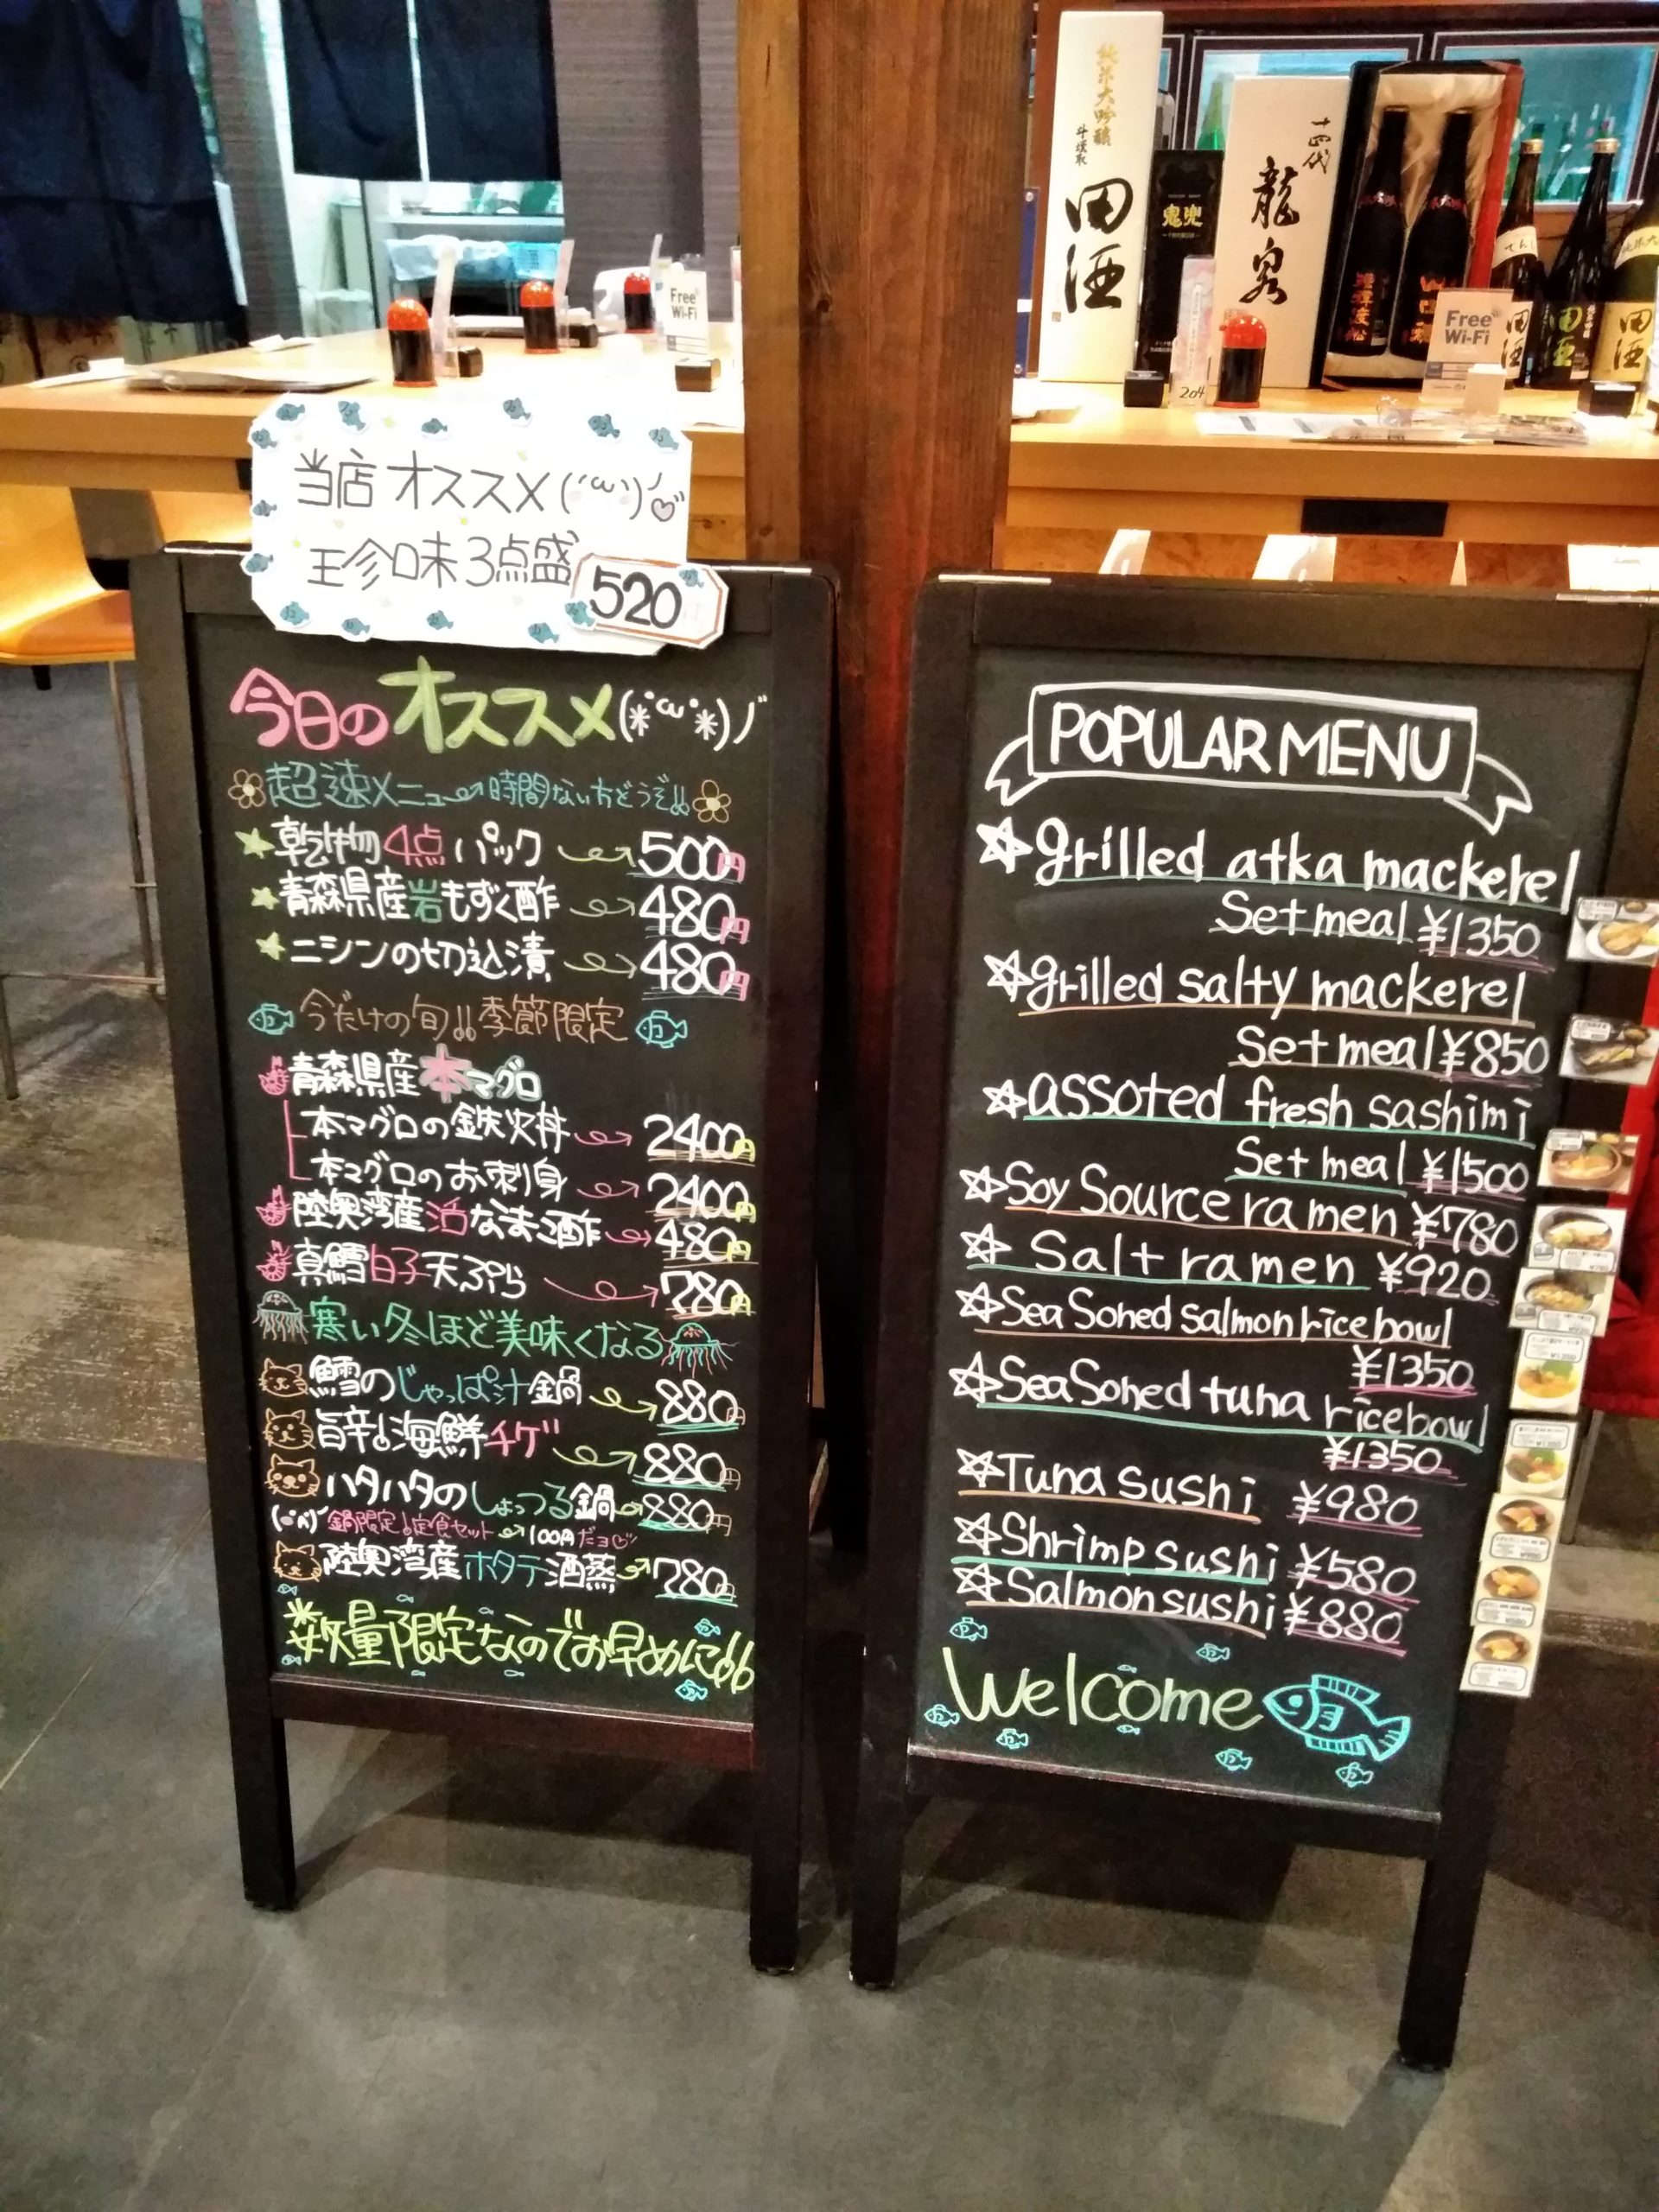 当店 オススメ(´ω`)ﾉ♡
珍味3点盛 520
今日のオススメ(*´ω`*)ﾉ
超速メニュー→時間ない方どうぞ!!
乾物4点パック 500円
青森県産岩もずく酢 480円
ニシンの切込漬 480円
今だけの旬!!季節限定
青森県産本マグロ
本マグロの鉄火丼 2400円
本マグロのお刺身 2400円
陸奥湾産活なまこ酢 480円
真鱈白子天ぷら 780円
寒い冬ほど美味くなる
鱈のじゃっぱ汁鍋 880円
旨辛!海鮮チゲ 880円
ハタハタのしょっつる鍋 880円
鍋限定!定食セット→100円だヨ♡
陸奥湾産ホタテ酒蒸 780円
※数量限定なのでお早めに!!
POPULAR MENU
☆grilled atka mackerel
Set meal ¥1350
☆grilled salty mackerel
Set meal ¥850
☆assoted fresh sashimi
Set meal ¥1500
☆Soy Source ramen ¥780
☆Salt ramen ¥920
☆SeaSoned salmon rice bowl
¥1350
☆SeaSoned tuna rice bowl
¥1350
☆Tuna sushi ¥980
☆Shrimp sushi ¥580
☆Salmon sushi ¥880
Welcome
Free Wi-Fi
純米大吟醸
斗壜取
田酒
鬼兜
十四代
龍泉
204
Free Wi-Fi
田酒
田酒
田酒